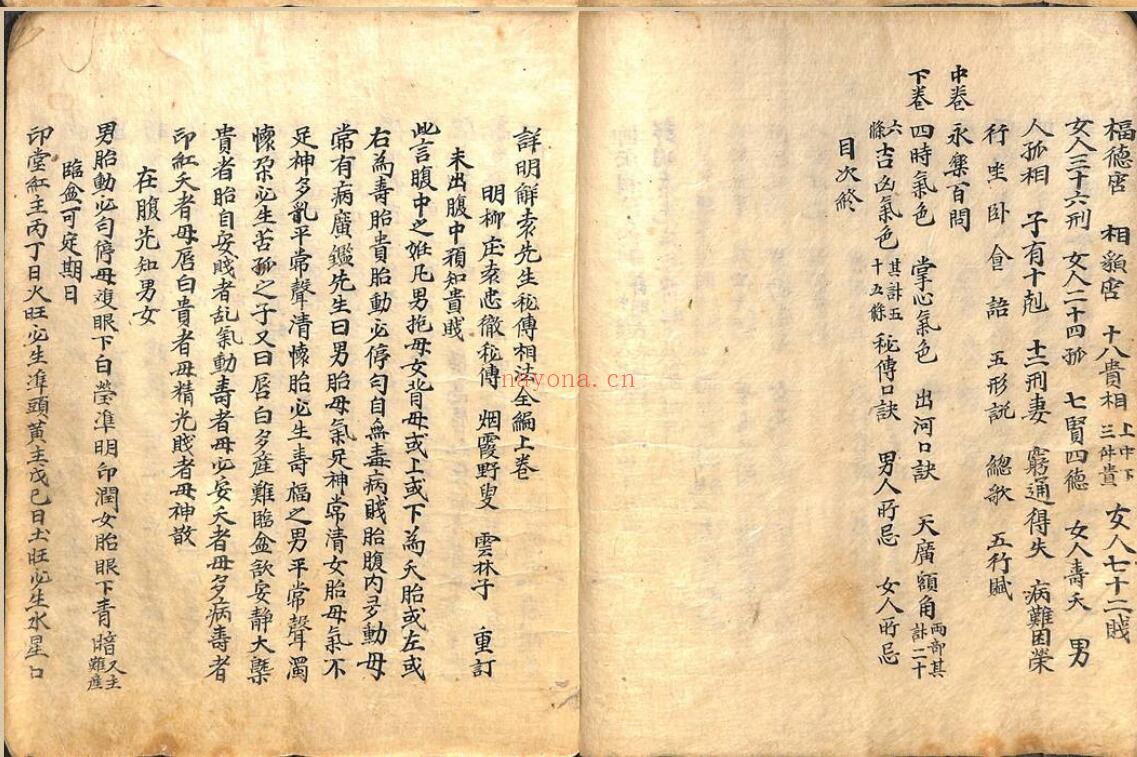 福德宮 相貌宮 十八貴相 上中下三件貴 女人七十二賤
女人三十六刑 女人二十四孤 七賢四德 女人壽夭 男
人孤相 子有十剋 十二刑妻 窮通得失 病難困榮
行坐卧食語 五形説 總歌 五行賦
中卷 永樂百問
下卷 四時氣色 掌心氣色 出河口訣 天廣額角 両部其計二十
六條 吉凶氣色 其計五十五條 秘傳口訣 男人所忌 女人所忌
目次終
詳明解袁先生秘傳相法全編上卷
明柳庄袁忠徹秘傳 烟霞野叟 雲林子 重訂
未出腹中預知貴賎
此言腹中之姙凡男抱母女背母或上或下為夭胎或左或
右為壽胎貴胎動必停匀自無毒病賎胎腹内多動母
常有病廣鑑先生曰男胎母氣足神常清女胎母氣不
足神多亂平常聲清懷胎必生壽福之男平常聲濁
懷孕必生苦孤之子又曰唇白多産難臨盆欲安靜大槩
貴者胎自安賎者乱氣動壽者母必安夭者母多病壽者
印紅夭者母唇白貴者母精光賎者母神散
在腹先知男女
男胎動必匀停母複眼下白瑩準明印潤女胎眼下青暗 又主難產
臨盆可定期日
印堂紅主丙丁日火旺必生準頭黄主戊己日土旺必生水星口
nayona.cn